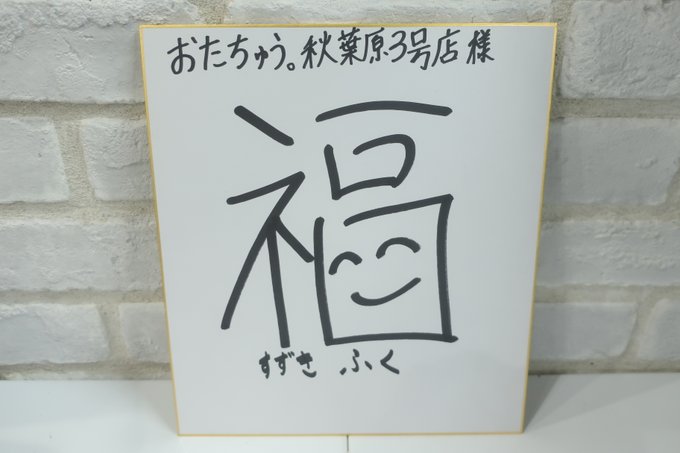 おたちゅう。秋葉原3号店様
福
すずき ふく